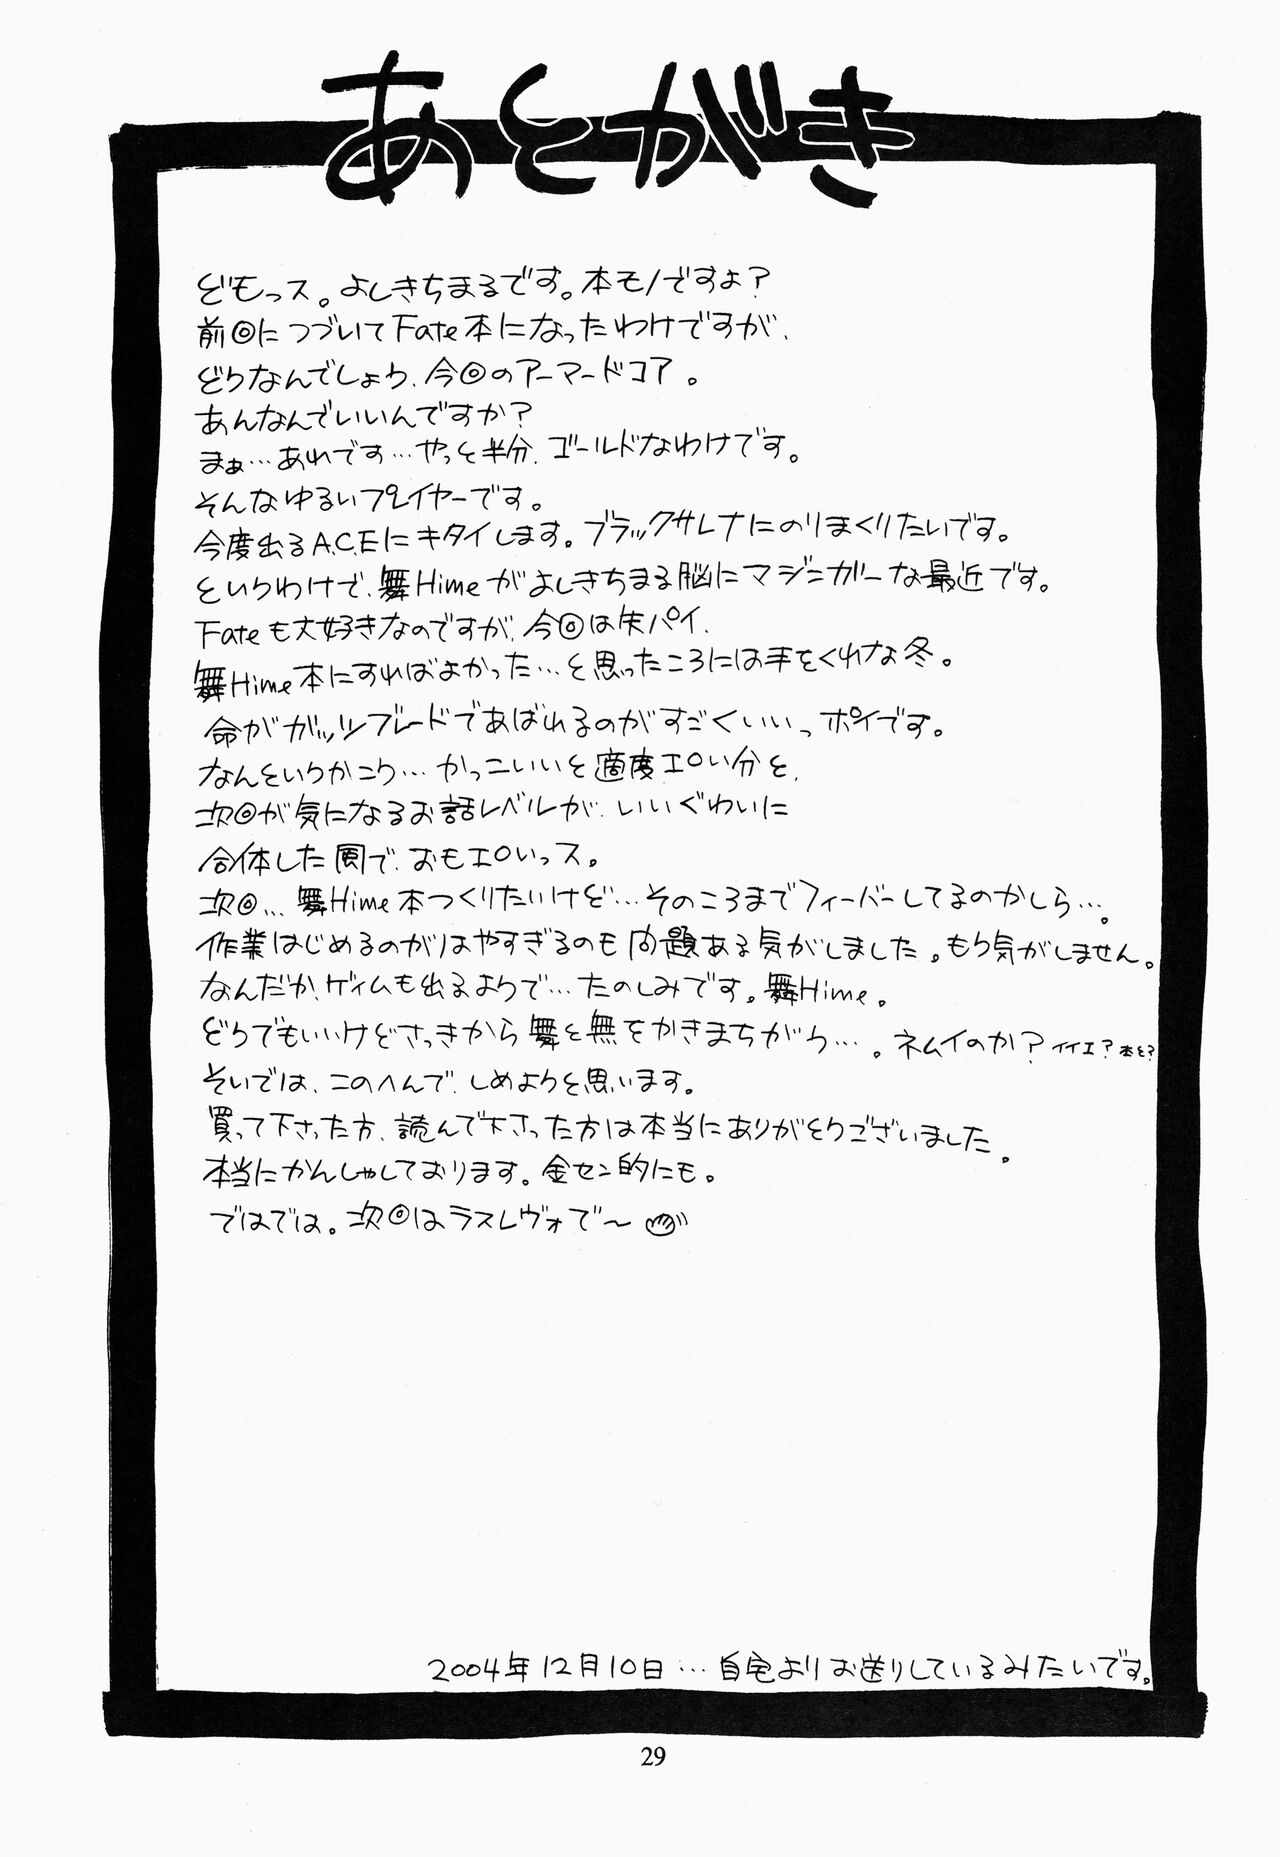 あとがき
どもっス。よしきちまるです。本モノですよ?
前回につづいてFate本になったわけですが、
どうなんでしょう、今回のアーマードコア。
あんなんでいいんですか?
まぁ…あれです…やっと半分、ゴールドなわけです。
そんなゆるいプレイヤーです。
今度出るA.C.Eにキタイします。ブラックサレナにのりまくりたいです。
というわけで、舞Himeがよしきちまる脳にマジンガーな最近です。
Fateも大好きなのですが、今回は失パイ、
舞Hime本にすればよかった…と思ったころには手をくれな冬。
命がガッツブレードであばれるのがすごくいいっポイです。
なんというかこう…かっこいいと適度エロい分と、
次回が気になるお話レベルが、いいぐわいに
合体した風で、おもエロいっス。
次回…舞Hime本つくりたいけど…そのころまでフィーバーしてるのかしら…。
作業はじめるのがはやすぎるのも問題ある気がしました。もう気がしません。
なんだか、ゲィムも出るようで…たのしみです。舞Hime。
どうでもいいけどさっきから舞と無をかきまちがう…。ネムイのか?イイエ?本と?
そいでは、このへんで、しめようと思います。
買って下さった方、読んで下さった方は本当にありがとうございました。
本当にかんしゃしております。金セン的にも。
ではでは。次回はラスレヴォで〜
2004年12月10日…自宅よりお送りしているみたいです。
29